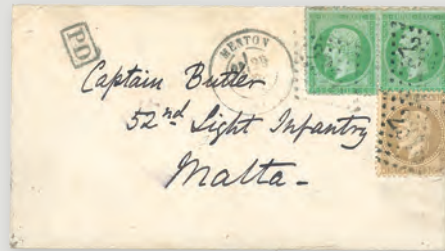 PD
MENTON
Captain Butler
52nd Light Infantry
Malta -